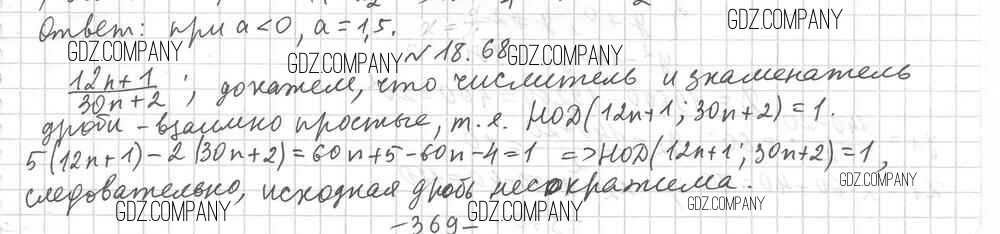 Ответ: при a<0, a=1,5.
GDZ.COMPANY
GDZ.COMPANY GDZ.COMPANY № 18.68 GDZ.COMPANY
12n+1
30n+2 ; докажем, что числитель и знаменатель
дроби - взаимно простые, т.е. НОД(12n+1; 30n+2)=1.
5(12n+1)-2(30n+2)=60n+5-60n-4=1 =>НОД(12n+1; 30n+2)=1,
следовательно, исходная дробь несократима.
GDZ.COMPANY
GDZ.COMPANY GDZ.COMPANY GDZ.COMPANY
-369-